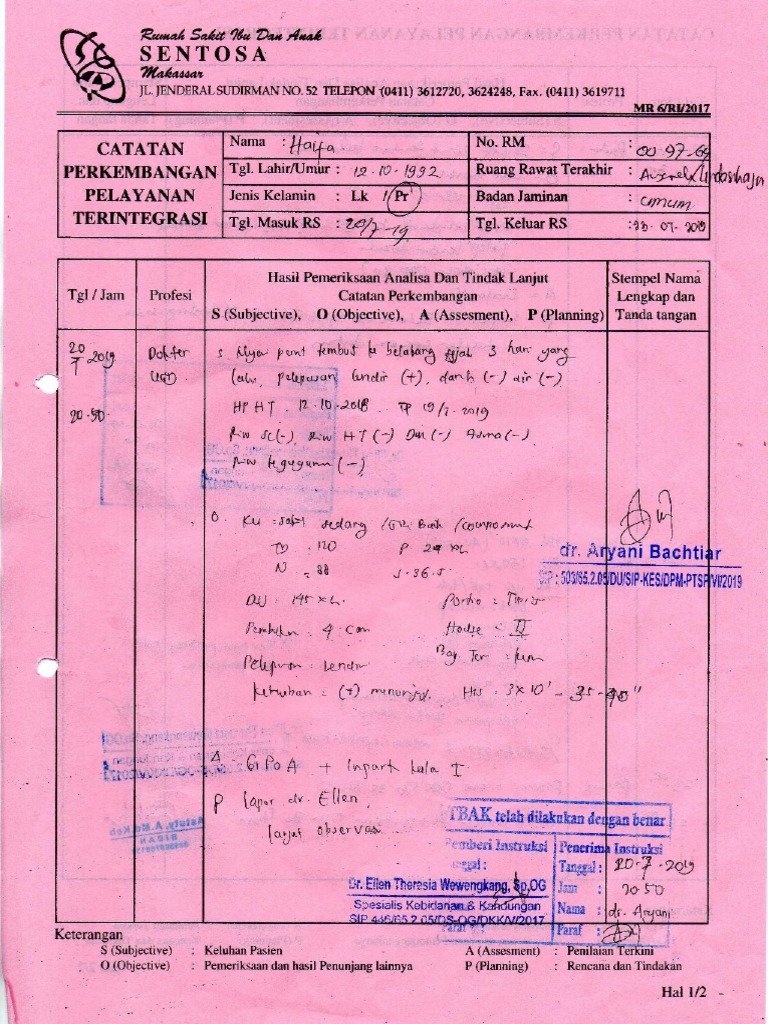 Rumah Sakit Ibu Dan Anak
SENTOSA
Makassar
JL. JENDERAL SUDIRMAN NO. 52 TELEPON (0411) 3612720, 3624248, Fax. (0411) 3619711
MR 6/RI/2017
CATATAN PERKEMBANGAN PELAYANAN TERINTEGRASI
Nama : Haifa
No. RM : 00 97 69
Tgl. Lahir/Umur : 12-10-1992
Ruang Rawat Terakhir :
Jenis Kelamin : Lk / Pr
Badan Jaminan : umum
Tgl. Masuk RS : 20/7-19
Tgl. Keluar RS : 23-07-2019
Tgl / Jam
Profesi
Hasil Pemeriksaan Analisa Dan Tindak Lanjut
Catatan Perkembangan
S (Subjective), O (Objective), A (Assesment), P (Planning)
Stempel Nama
Lengkap dan
Tanda tangan
20/7 2019 Dokter S. Nyeri perut tembus ke belakang sejak 3 hari yang
UGD lalu, pelepasan lendir (+), darah (-) air (-)
20.50 HPHT : 12-10-2018 TP 19/7-2019
Riw SC (-), Riw HT (-) DM (-) Asma (-)
Riw keguguran (-)
O. KU : sakit sedang / Gizi Baik / composmentis
TD = 120 P 24 x/
N = 88 S = 36.5
DJJ = 145 x/
Portio : Tipis
Pembukaan : 4 cm
Hodge : II
Pelepasan : Lendir
Ketuban = (+) menonjol HIS = 3x10' - 35-40"
dr. Aryani Bachtiar
SIP : 503/65.2.05/DU/SIP-KES/DPM-PTSP/VI/2019
A. G1P0A + Inpartu kala I
P lapor dr. Ellen,
lanjut observasi
TBAK telah dilakukan dengan benar
Pemberi Instruksi
Penerima Instruksi
Tanggal :
Tanggal : 20-7-2019
Jam : 20 50
Nama : dr. Aryani
Paraf :
Dr. Ellen Theresia Wewengkang, Sp.OG
Spesialis Kebidanan & Kandungan
SIP 446/65.2.05/DS-OG/DKK/V/2017
Keterangan
S (Subjective) : Keluhan Pasien
A (Assesment) : Penilaian Terkini
O (Objective) : Pemeriksaan dan hasil Penunjang lainnya
P (Planning) : Rencana dan Tindakan
Hal 1/2